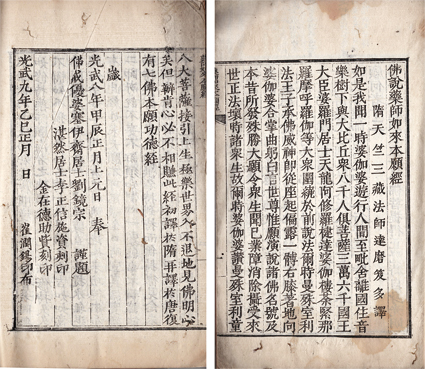 佛說藥師如來本願經
隋天竺三藏法師達磨笈多譯
如是我聞一時婆伽婆遊行人間至毗舍離國住音
樂樹下與大比丘衆八千人俱菩薩三萬六千國王
大臣婆羅門居士天龍阿修羅揵達婆伽樓茶緊那
羅摩呼羅伽等大衆圍繞於前說法爾時曼殊室利
法王子承佛威神從座起偏露一體右膝著地向
婆伽婆合掌曲躬白言世尊惟願演說諸佛名號及
本昔所發殊勝大願令衆生聞已業障消除攝受來
世正法壞時諸衆生故爾時婆伽婆讚曼殊室利童
八大菩薩接引上生極樂世界入不退地見佛明心
矣但辦肯心必不相賺此經初譯於隋再譯於唐復
有七佛本願功德經
歲
光武八年甲辰正月上元日 奉
佛戒優婆塞伊齋居士劉鏡宗 謹題
湛然居士李正信施資刻印
金在德助資刻印
光武九年乙巳正月 日 崔 錫印布